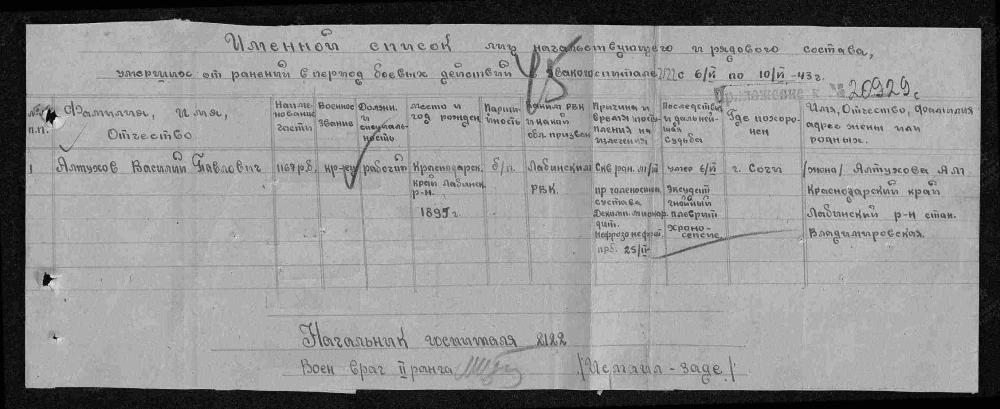 Именной список лиц начальствующего и рядового состава,
умерших от ранений в период боевых действий в эвакогоспитале 2122 с 6/VI по 10/VI -43 г.
Приложение к № 20929с
№№ п.п.
Фамилия, имя,
Отчество
Наиме-
нование
части
Военное
звание
Должн.
и
специаль-
ность
место и
год рожден.
Партий-
ность
Каким РВК
и какой
обл. призван
Причина и
время поступ-
ления на
излечения
Последствия
и дальней-
шая
судьба
Где похоро-
нен
Имя, Отчество, Фамилия
адрес жены или
родных.
1 Алтухов Василий Павлович 1167 р.б. кр-ец рабочий Краснодарск.
край Лабинск.
р-н.
1895 г.
б/п. Лабинский
РВК.
Скв ран.
пр голеностоп.
сустава
Декомп. миокар
дит.
Нефрозонефрит
приб. 25/
умер 6/VI
Эксудат
гнойный
плеврит
Хронио-
сепсис
г. Сочи
/жена/ Алтухова А.М.
Краснодарский край
Лабинский р-н стан.
Владимировская.
Начальник госпиталя 2122
Воен врач II ранга /Исмаил-заде/